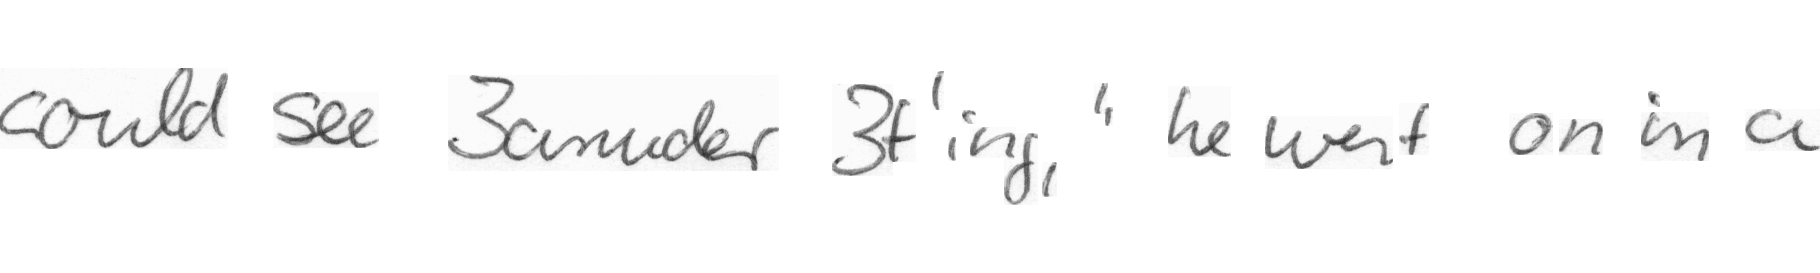 could see 3anuder 3t'ing," he went on in a